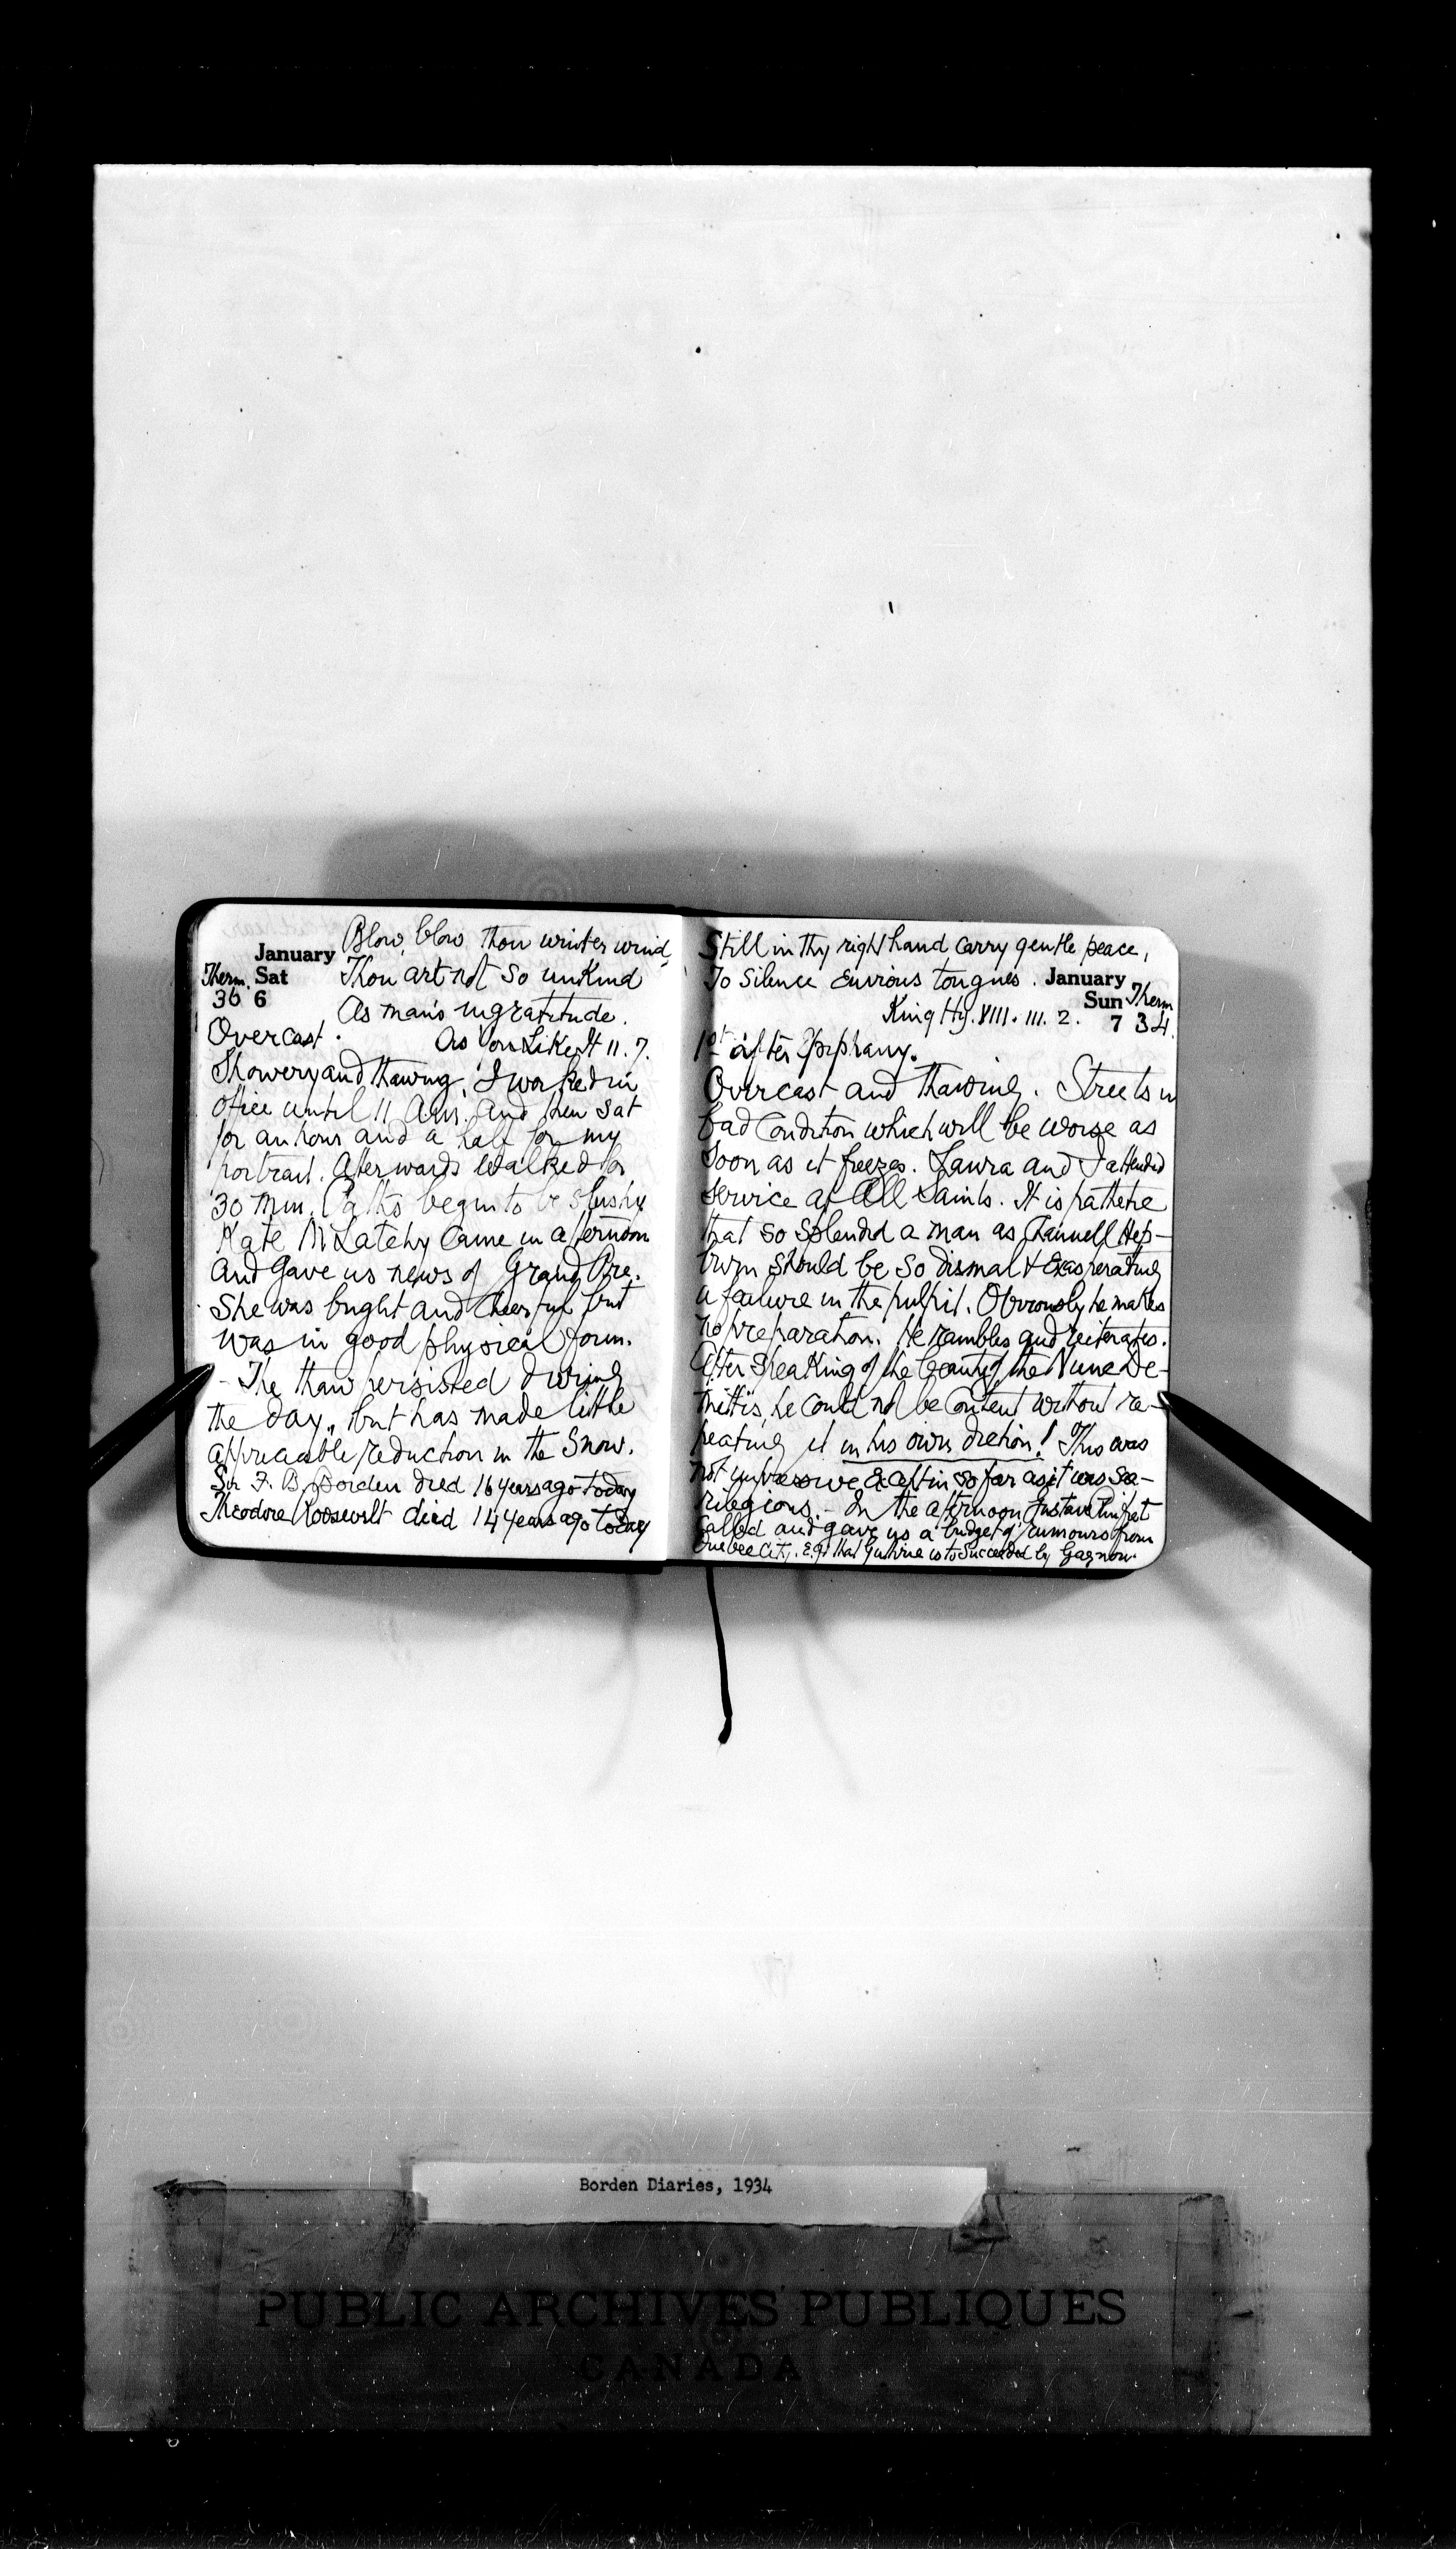 Blow, blow thou winter wind,
January
Thou art not so unkind
Therm. Sat
36 6
As man's ingratitude.
Overcast. As You Like It 11. 7.
Showery and thawing. I worked in
office until 11 A.m. and then sat
for an hour and a half for my
portrait. Afterwards walked for
30 min. Paths begin to be slushy
Kate McLatchy came in afternoon
and gave us news of Grand Pre.
She was bright and cheerful but
was in good physical form.
- The thaw persisted during
the day, but has made little
appreciable reduction in the snow.
Sir F. B. Borden died 16 years ago today
Theodore Roosevelt died 14 years ago today
Still in thy right hand carry gentle peace,
To silence envious tongues. January
Sun Therm
King Hy. VIII. III. 2. 7 34.
1st after Epiphany.
Overcast and thawing. Streets in
bad condition which will be worse as
soon as it freezes. Laura and I attended
service at All Saints. It is pathetic
that so splendid a man as Channell Hep-
burn should be so dismal & exasperating
a failure in the pulpit. Obviously he makes
no preparation. He rambles and reiterates.
After speaking of the beauty of the Nunc De-
mittis, he could not be content without re-
peating it in his own diction! This was
not impressive except in so far as it was sa-
crilegious. - In the afternoon
called and gave us a budget of rumours from
Quebec City. E.g. that Guthrie is to succeeded by Gagnon.
Borden Diaries, 1934
PUBLIC ARCHIVES PUBLIQUES
CANADA